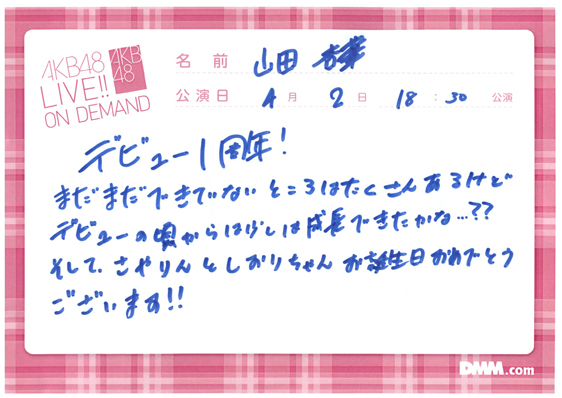 AKB48
LIVE!!
ON DEMAND
AKB
48
名前 山田 杏華
公演日 4月 2日 18:30 公演
デビュー1周年!
まだまだできてないところはたくさんあるけど
デビューの頃からは少しは成長できたかな…??
そして、さやりんとしおりちゃんお誕生日おめでとう
ございます!!
DMM.com